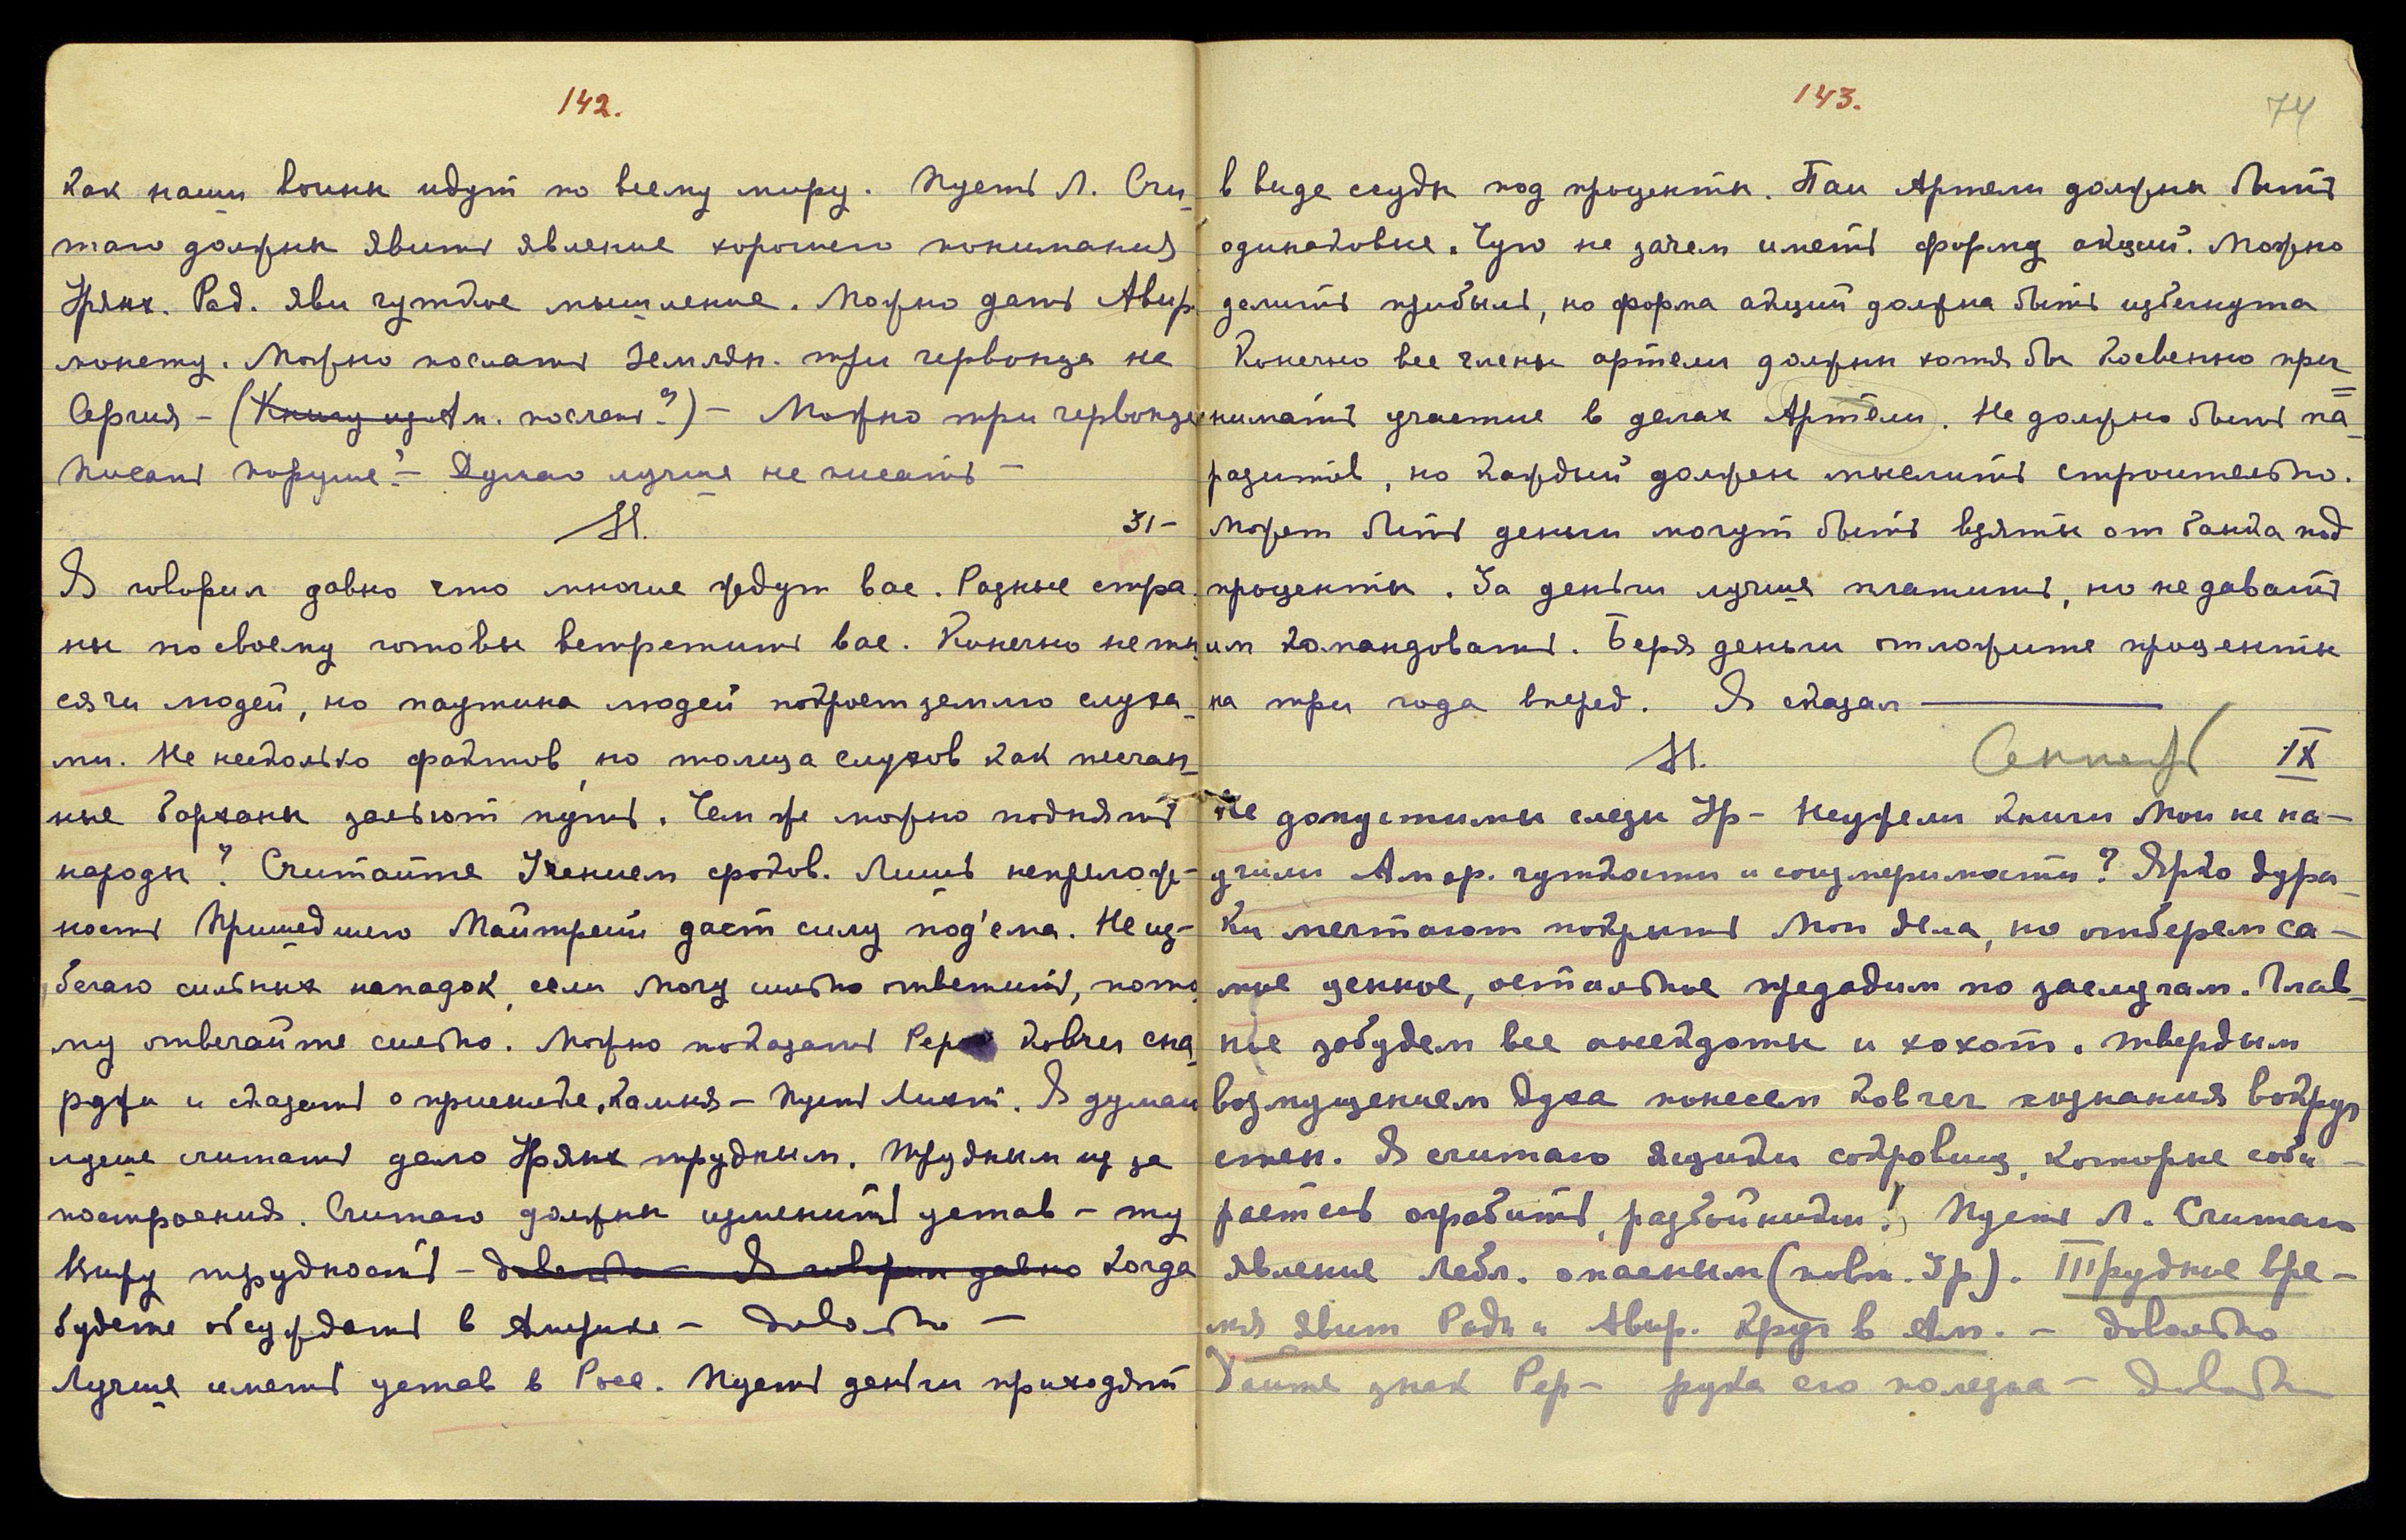 142.
Как наши воины идут по всему миру. Пусть Л. Счи-
таю должны явить явление хорошего понимания
Урянх. Рад. яви чуткое мышление. Можно дать Авир.
монету. Можно послать Землян. три червонца не
Сергия – (Книгу из Ам. послать?) – Можно три червонца
Писать поручи? – Думаю лучше не писать –
31 –
Я говорил давно что многие ждут вас. Разные стра-
ны по своему готовы встретить вас. Конечно не ты-
сячи людей, но паутина людей покроет землю слуха-
ми. Не несколько фактов, но толща слухов как песчан-
ные барханы зальют путь. Чем же можно поднять
народы? Считайте Учением сроков. Лишь непрелож-
ность Пришедшего Майтрейи даст силу под'ема. Не из-
бегаю сильных нападок, если могу сильно ответить, пото-
му отвечайте сильно. Можно показать Рер. Ковчег сна-
ружи и сказать о присылке Камня – Пусть Лихт. Я думаю
лучше считать дело Урянх трудным. Трудным из за
построения. Считаю должны изменить устав – ту
вижу трудность – довольно – Я говорил давно Когда
будете обсуждать в Америке – Довольно –
Лучше иметь устав в Росс. Пусть деньги приходят
143.
74
в виде ссуды под проценты. Паи Артели должны быть
одинаковые. Чую не зачем иметь форму акций. Можно
делить прибыль, но форма акций должна быть избегнута
Конечно все члены артели должны хотя бы косвенно при-
нимать участие в делах Артели. Не должно быть па-
разитов, но каждый должен мыслить строительно.
Может быть деньги могут быть взяты от банка под
проценты. За деньги лучше платить, но не давать
им командовать. Беря деньги отложите проценты
на три года вперед. Я сказал
Сентябрь IX
Не допустимы слезы Ур – Неужели Книги Мои не на-
учили Амер. чуткости и соизмеримости? Ярко дура-
ки мечтают покрыть Мои дела, но отберем са-
мое ценное, остальное предадим по заслугам. Глав-
ное забудем все анекдоты и хохот. твердым
возмущением духа понесем ковчег познания вокруг
стен. Я считаю ящики сокровищ, которые соби-
раетесь ограбить, разбойники! Пусть Л. Считаю
явление Лебл. опасным (повт. Ур). Трудные вре-
мя явит Радн и Авир. Круг в Ам. – Довольно
Дайте знак Рер – рука его полезна – Довольно